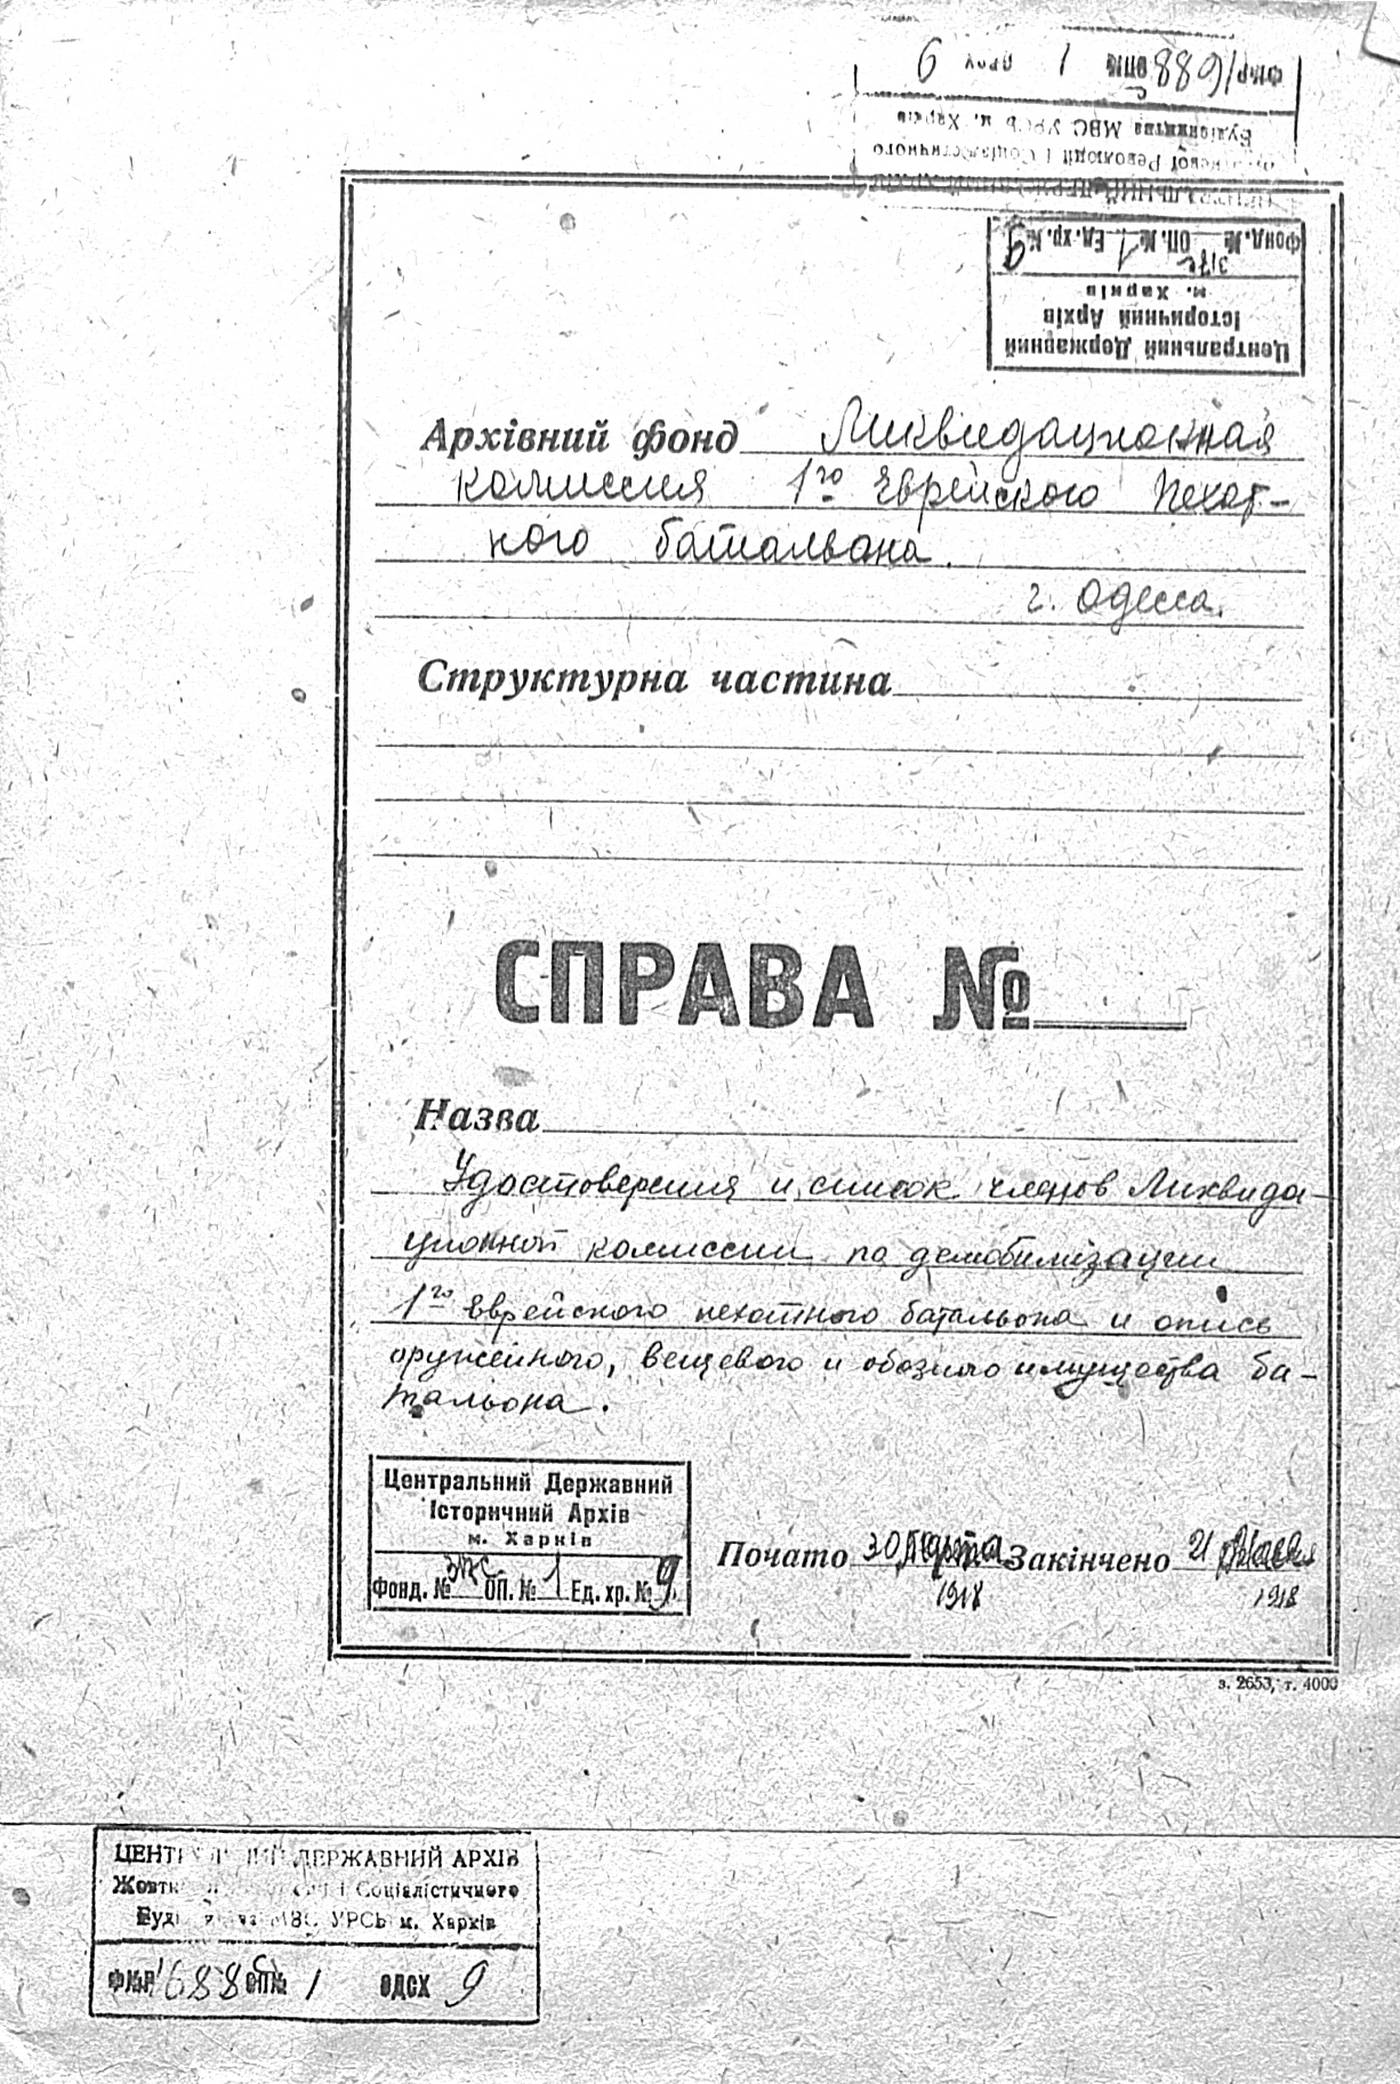 ФМР 1688 ОПМ 1 ОДСХ 9
Революції і Соціалістичного
Будівництва МВС УРСР м. Харків
Центральний Державний
Історичний Архів
м. Харків
Фонд. № 317с ОП. № 1 Ед. хр. № 9
Архівний фонд Ликвидационная
комиссия 1го Еврейского Пехот-
ного баталъона.
г. Одесса.
Структурна частина
СПРАВА №
Назва
Удостоверения и список членов Ликвида-
ционной комиссии по демобилізации
1го Еврейского пехотного батальона и опись
оружейного, вещевого и обозного имущества ба-
тальона.
Центральний Державний
Історичний Архів
м. Харків
Фонд. № ОП. № 1 Ед. хр. № 9
Почато 30 Марта Закінчено 21 Мая
1918 1918
з. 2653, т. 4000
ДЕРЖАВНИЙ АРХІВ
і Соціалістичного
УРСР м. Харків
ФМР 1688 ОПМ 1 ОДСХ 9